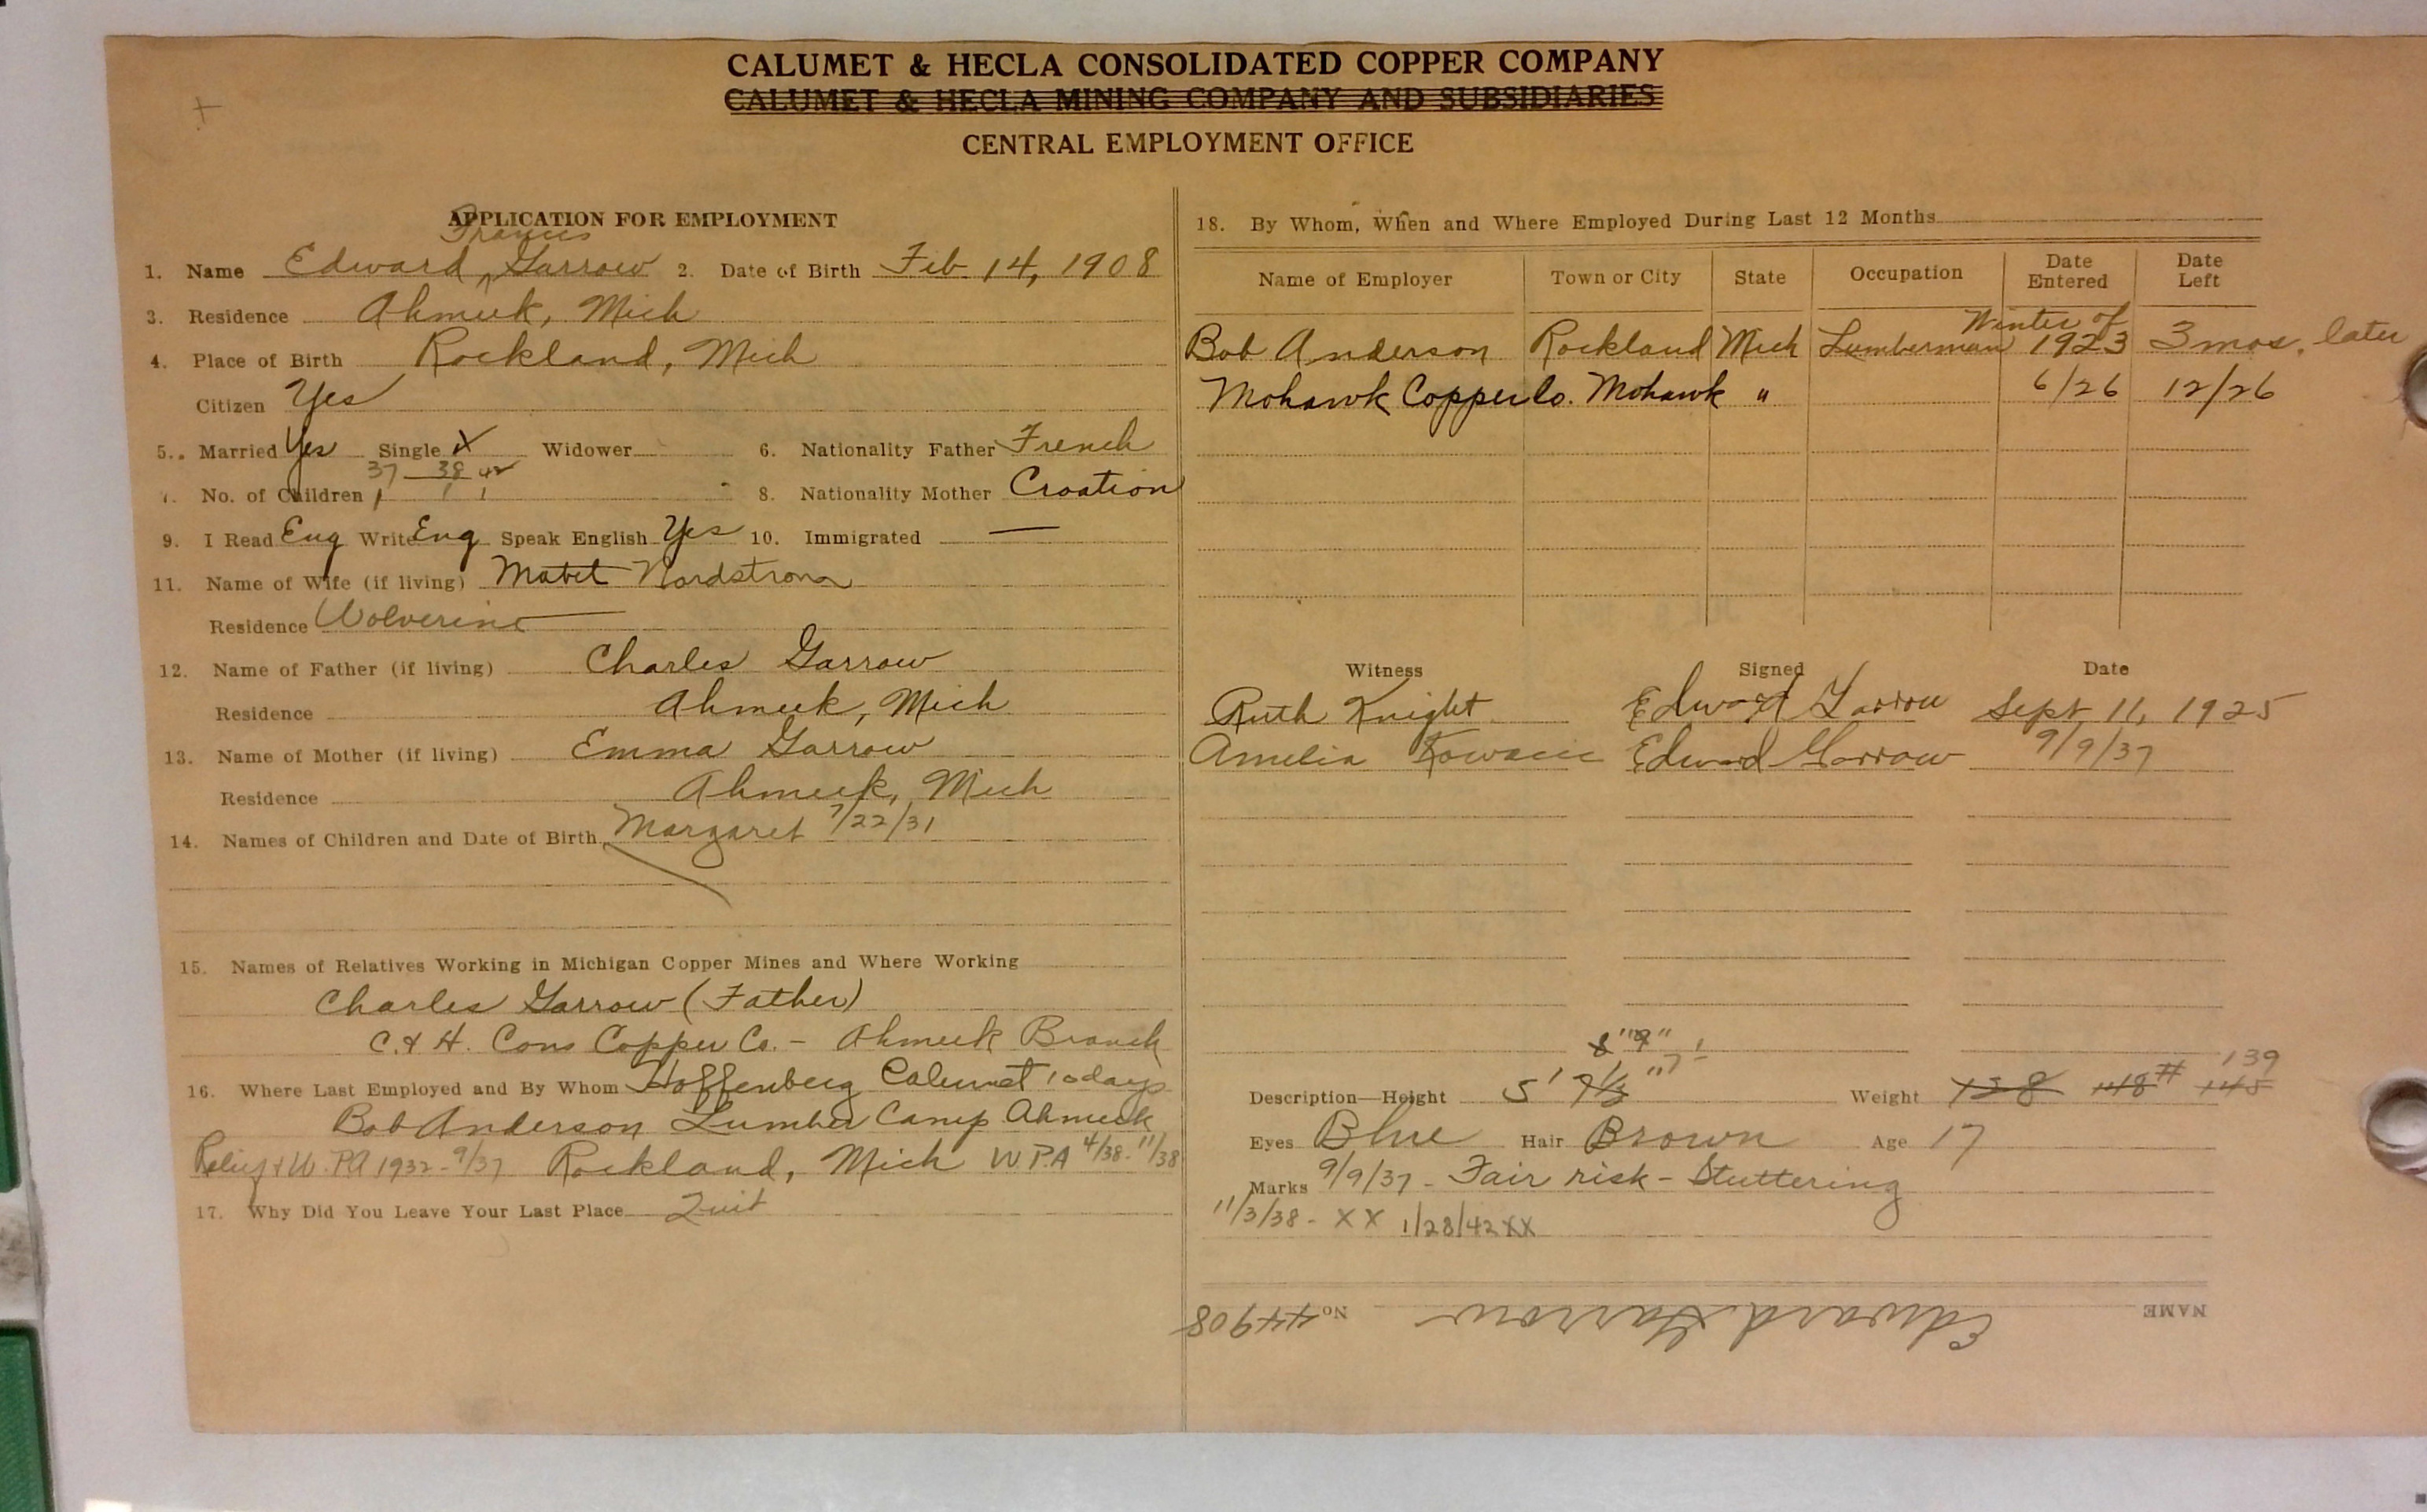 CALUMET & HECLA CONSOLIDATED COPPER COMPANY
CALUMET & HECLA MINING COMPANY AND SUBSIDIARIES
CENTRAL EMPLOYMENT OFFICE
APPLICATION FOR EMPLOYMENT
Francis
1. Name Edward Garrow 2. Date of Birth Feb 14, 1908
3. Residence Ahmeek, Mich
4. Place of Birth Rockland, Mich
Citizen Yes
5. Married Yes Single X Widower 6. Nationality Father French
37 38 42
7. No. of Children 1 1 1 8. Nationality Mother Croation
9. I Read Eng Write Eng Speak English Yes 10. Immigrated —
11. Name of Wife (if living) Mabel Nordstrom
Residence Wolverine
12. Name of Father (if living) Charles Garrow
Residence Ahmeek, Mich
13. Name of Mother (if living) Emma Garrow
Residence Ahmeek, Mich
14. Names of Children and Date of Birth Margaret 7/22/31
15. Names of Relatives Working in Michigan Copper Mines and Where Working
Charles Garrow (Father)
C. & H. Cons Copper Co. - Ahmeek Branch
16. Where Last Employed and By Whom Hoffenberg Calumet 10 days
Bob Anderson Lumber Camp Ahmeek
Relief & W.P.A 1932-9/37 Rockland, Mich W.P.A 4/38-11/38
17. Why Did You Leave Your Last Place Quit
18. By Whom, When and Where Employed During Last 12 Months
Name of Employer Town or City State Occupation Date Entered Date Left
Bob Anderson Rockland Mich Lumberman Winter of 1923 3 mos. later
Mohawk Copper Co. Mohawk " 6/26 12/26
Witness Signed Date
Ruth Knight Edward Garrow Sept 11, 1925
Amelia Edward Garrow 9/9/37
8" 9"
Description—Height 5' 7½" 7' Weight 138 148# 145 139
Eyes Blue Hair Brown Age 17
Marks 9/9/37 - Fair risk - Stuttering
11/3/38 - XX 1/28/42 XX
NAME Edward Garrow No 44908